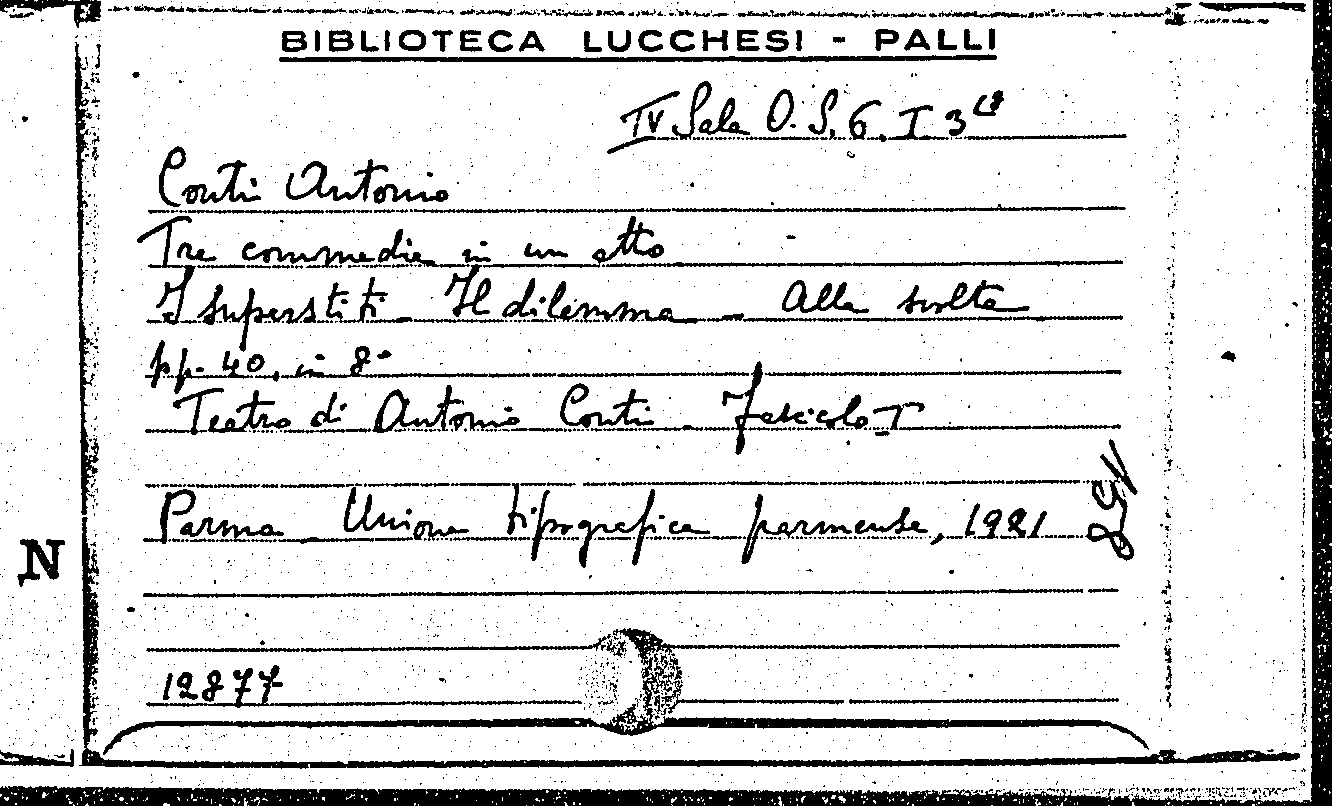 BIBLIOTECA LUCCHESI - PALLI
IV Sala O. S. 6. I 3
Conti Antonio
Tre commedie in un atto
I superstiti - Il dilemma - Alla svolta
pp. 40, in 8°
Teatro di Antonio Conti - Fascolo I
Parma - Unione tipografica parmense, 1921
N
12877